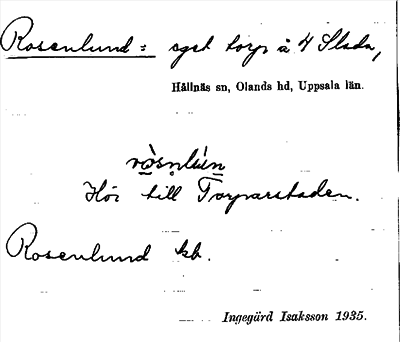 Rosenlund: eget torp å 4 Slada,
Hållnäs sn, Olands hd, Uppsala län.
Hör till Torparstaden.
Rosenlund kb.
Ingegärd Isaksson 1935.